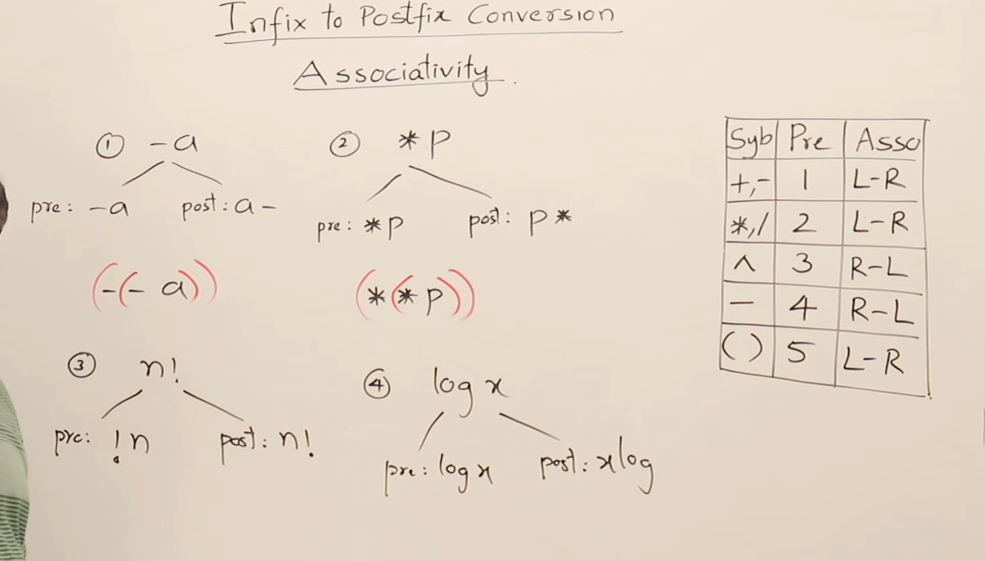 Infix to Postfix Conversion
Associativity
① -a
pre: -a post: a-
(-(-a))
② *p
pre: *p post: p*
(*(*p))
③ n!
pre: !n post: n!
④ log x
pre: log x post: x log
Syb Pre Asso
+,- 1 L-R
*,/ 2 L-R
^ 3 R-L
- 4 R-L
( ) 5 L-R